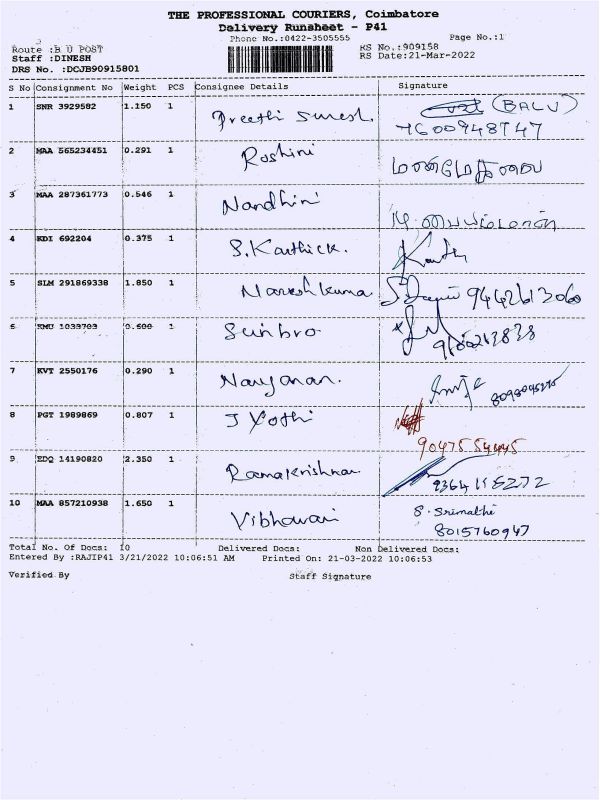 THE PROFESSIONAL COURIERS, Coimbatore
Delivery Runsheet - P41
Phone No.:0422-3505555
Page No.:1
Route :B U POST
RS No.:909158
Staff :DINESH
RS Date:21-Mar-2022
DRS No. :DCJB90915801
S No Consignment No Weight PCS Consignee Details Signature
1 SNR 3929582 1.150 1 Preethi Suresh. (BALU)
7600948747
2 MAA 565234451 0.291 1 Roshini மணிமேகலை
3 MAA 287361773 0.546 1 Nandhini
4 KDI 692204 0.375 1 S.Karthick.
5 SLM 291869338 1.850 1 Nareshkumar 9442613060
6 KMU 1033703 0.600 1 Sunbro
7 KVT 2550176 0.290 1 Narayanan.
8 PGT 1989869 0.807 1 Jyothi
9047554445
9 EDQ 14190820 2.350 1 Ramakrishnan
9364118272
10 MAA 857210938 1.650 1 Vibhavari S. Srimathi
8015760947
Total No. Of Docs: 10 Delivered Docs: Non Delivered Docs:
Entered By :RAJIP41 3/21/2022 10:06:51 AM Printed On: 21-03-2022 10:06:53
Verified By Staff Signature